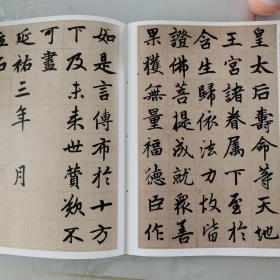 皇太后壽命等天地
王宮諸眷属下至於
含生歸依法力故皆
證佛菩提成就衆善
果獲無量福德臣作
如是言傳布於十方
下及未来世賛歎不
可盡
延祐三年 月